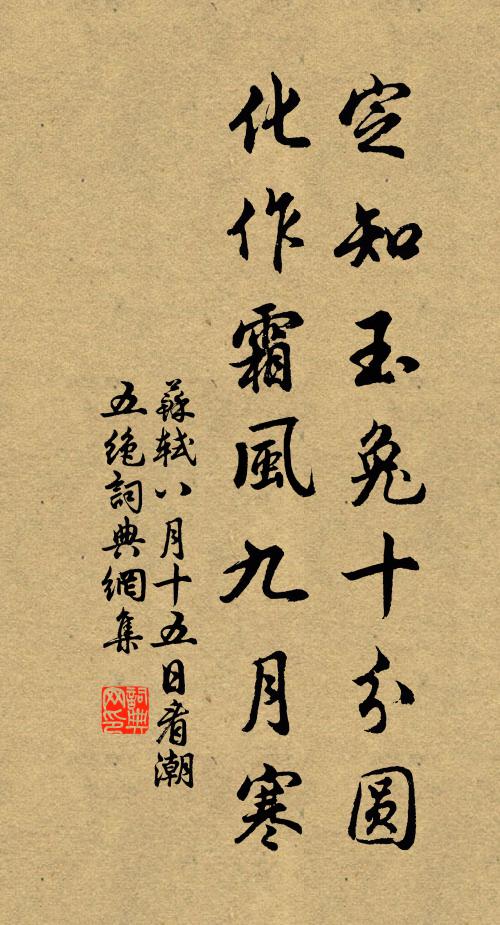 定知玉兔十分圓
化作霜風九月寒
蘇軾八月十五日看潮
五絶詞典網集
詞典
网印